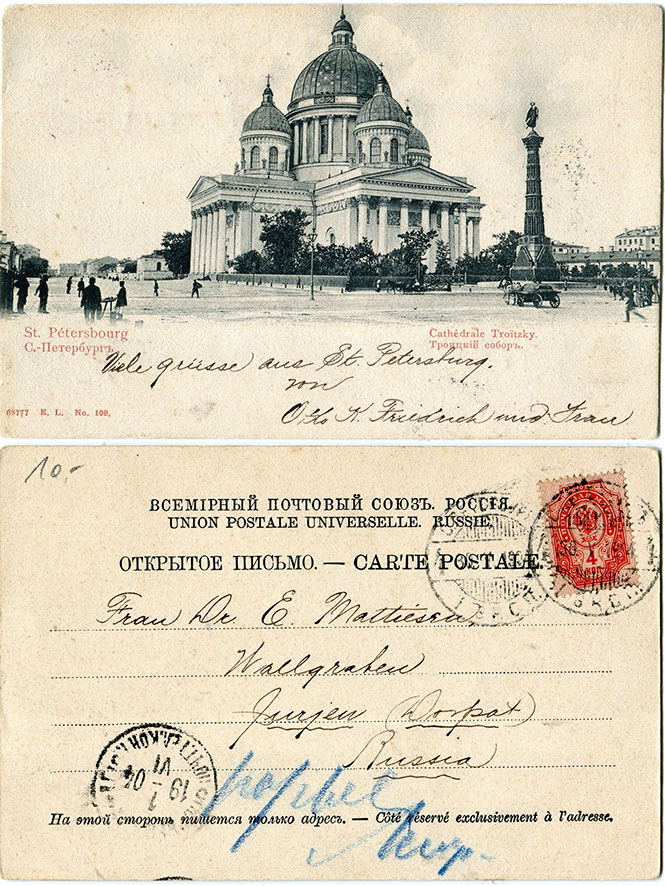 St. Pétersbourg
С.-Петербургъ.
Cathédrale Troïtzky.
Троицкій соборъ.
Viele grüsse aus St. Petersburg.
von
Otto K. Friedrich und Frau
68777 E. L. No. 109.
10.-
ВСЕМІРНЫЙ ПОЧТОВЫЙ СОЮЗЪ. РОССІЯ.
UNION POSTALE UNIVERSELLE. RUSSIE.
ОТКРЫТОЕ ПИСЬМО. — CARTE POSTALE.
4
Frau Dr. E. Mattiesen
Wallgraben
Jurjen (Dorpat)
Russia
19 VI 04
На этой сторонѣ пишется только адресъ. — Côté réservé exclusivement à l'adresse.